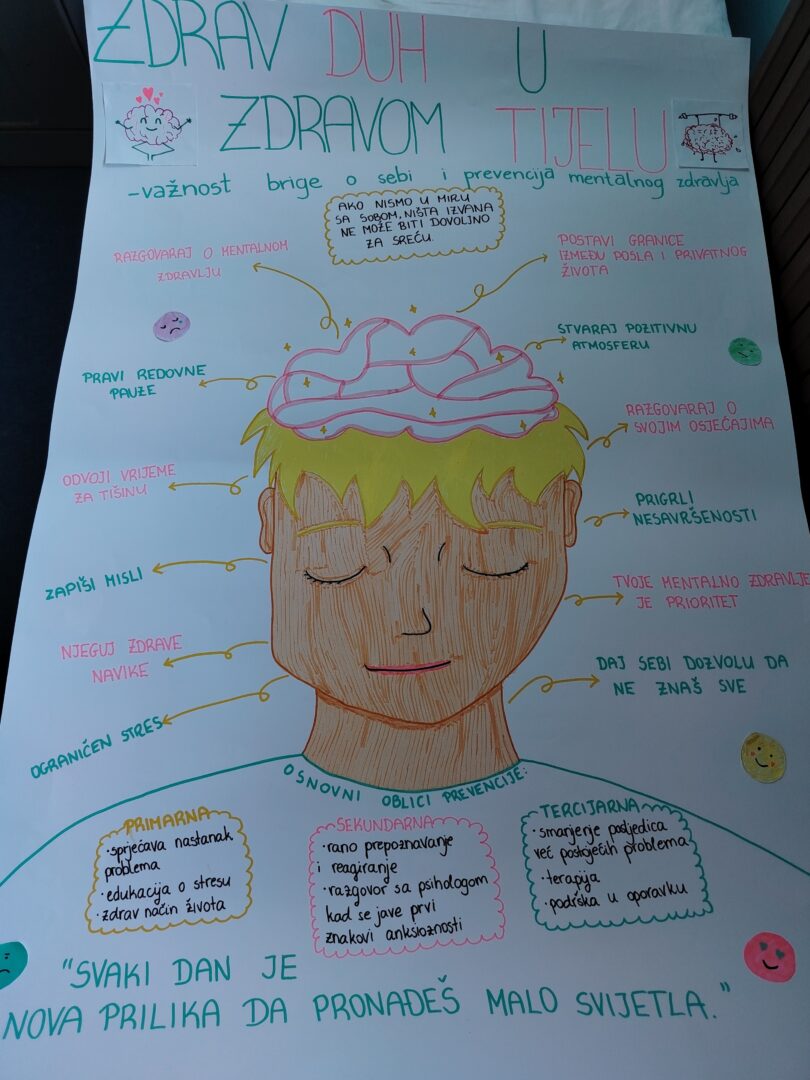 ZDRAV DUH U
ZDRAVOM TIJELU
-važnost brige o sebi i prevencija mentalnog zdravlja
AKO NISMO U MIRU
SA SOBOM, NIŠTA IZVANA
NE MOŽE BITI DOVOLJNO
ZA SREĆU.
RAZGOVARAJ O MENTALNOM
ZDRAVLJU
PRAVI REDOVNE
PAUZE
ODVOJI VRIJEME
ZA TIŠINU
ZAPIŠI MISLI
NJEGUJ ZDRAVE
NAVIKE
OGRANIČEN STRES
POSTAVI GRANICE
IZMEĐU POSLA I PRIVATNOG
ŽIVOTA
STVARAJ POZITIVNU
ATMOSFERU
RAZGOVARAJ O
SVOJIM OSJEĆAJIMA
PRIGRLI
NESAVRŠENOSTI
TVOJE MENTALNO ZDRAVLJE
JE PRIORITET
DAJ SEBI DOZVOLU DA
NE ZNAŠ SVE
OSNOVNI OBLICI PREVENCIJE:
PRIMARNA
· sprječava nastanak
problema
· edukacija o stresu
· zdrav način života
SEKUNDARNA
· rano prepoznavanje
i reagiranje
· razgovor sa psihologom
kad se jave prvi
znakovi anksioznosti
TERCIJARNA
· smanjenje posljedica
već postojećih problema
· terapija
· podrška u oporavku
"SVAKI DAN JE
NOVA PRILIKA DA PRONAĐEŠ MALO SVIJETLA."